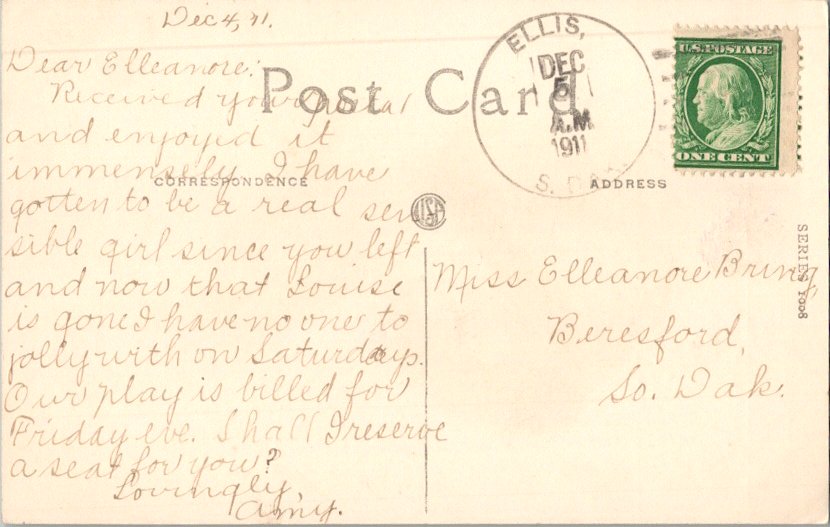 Dec 4, 11.
Dear Elleanore:
Received your postal
and enjoyed it
immensely. I have
gotten to be a real sen
sible girl since you left
and now that Louise
is gone I have no one to
jolly with on Saturdays.
Our play is billed for
Friday eve. Shall I reserve
a seat for you?
Lovingly,
Amy.
Post Card
CORRESPONDENCE
ELLIS,
DEC
5
A.M
1911
S. DAK.
U.S. POSTAGE
ONE CENT
ADDRESS
SERIES 1008
Miss Elleanore Bring
Beresford,
So. Dak.